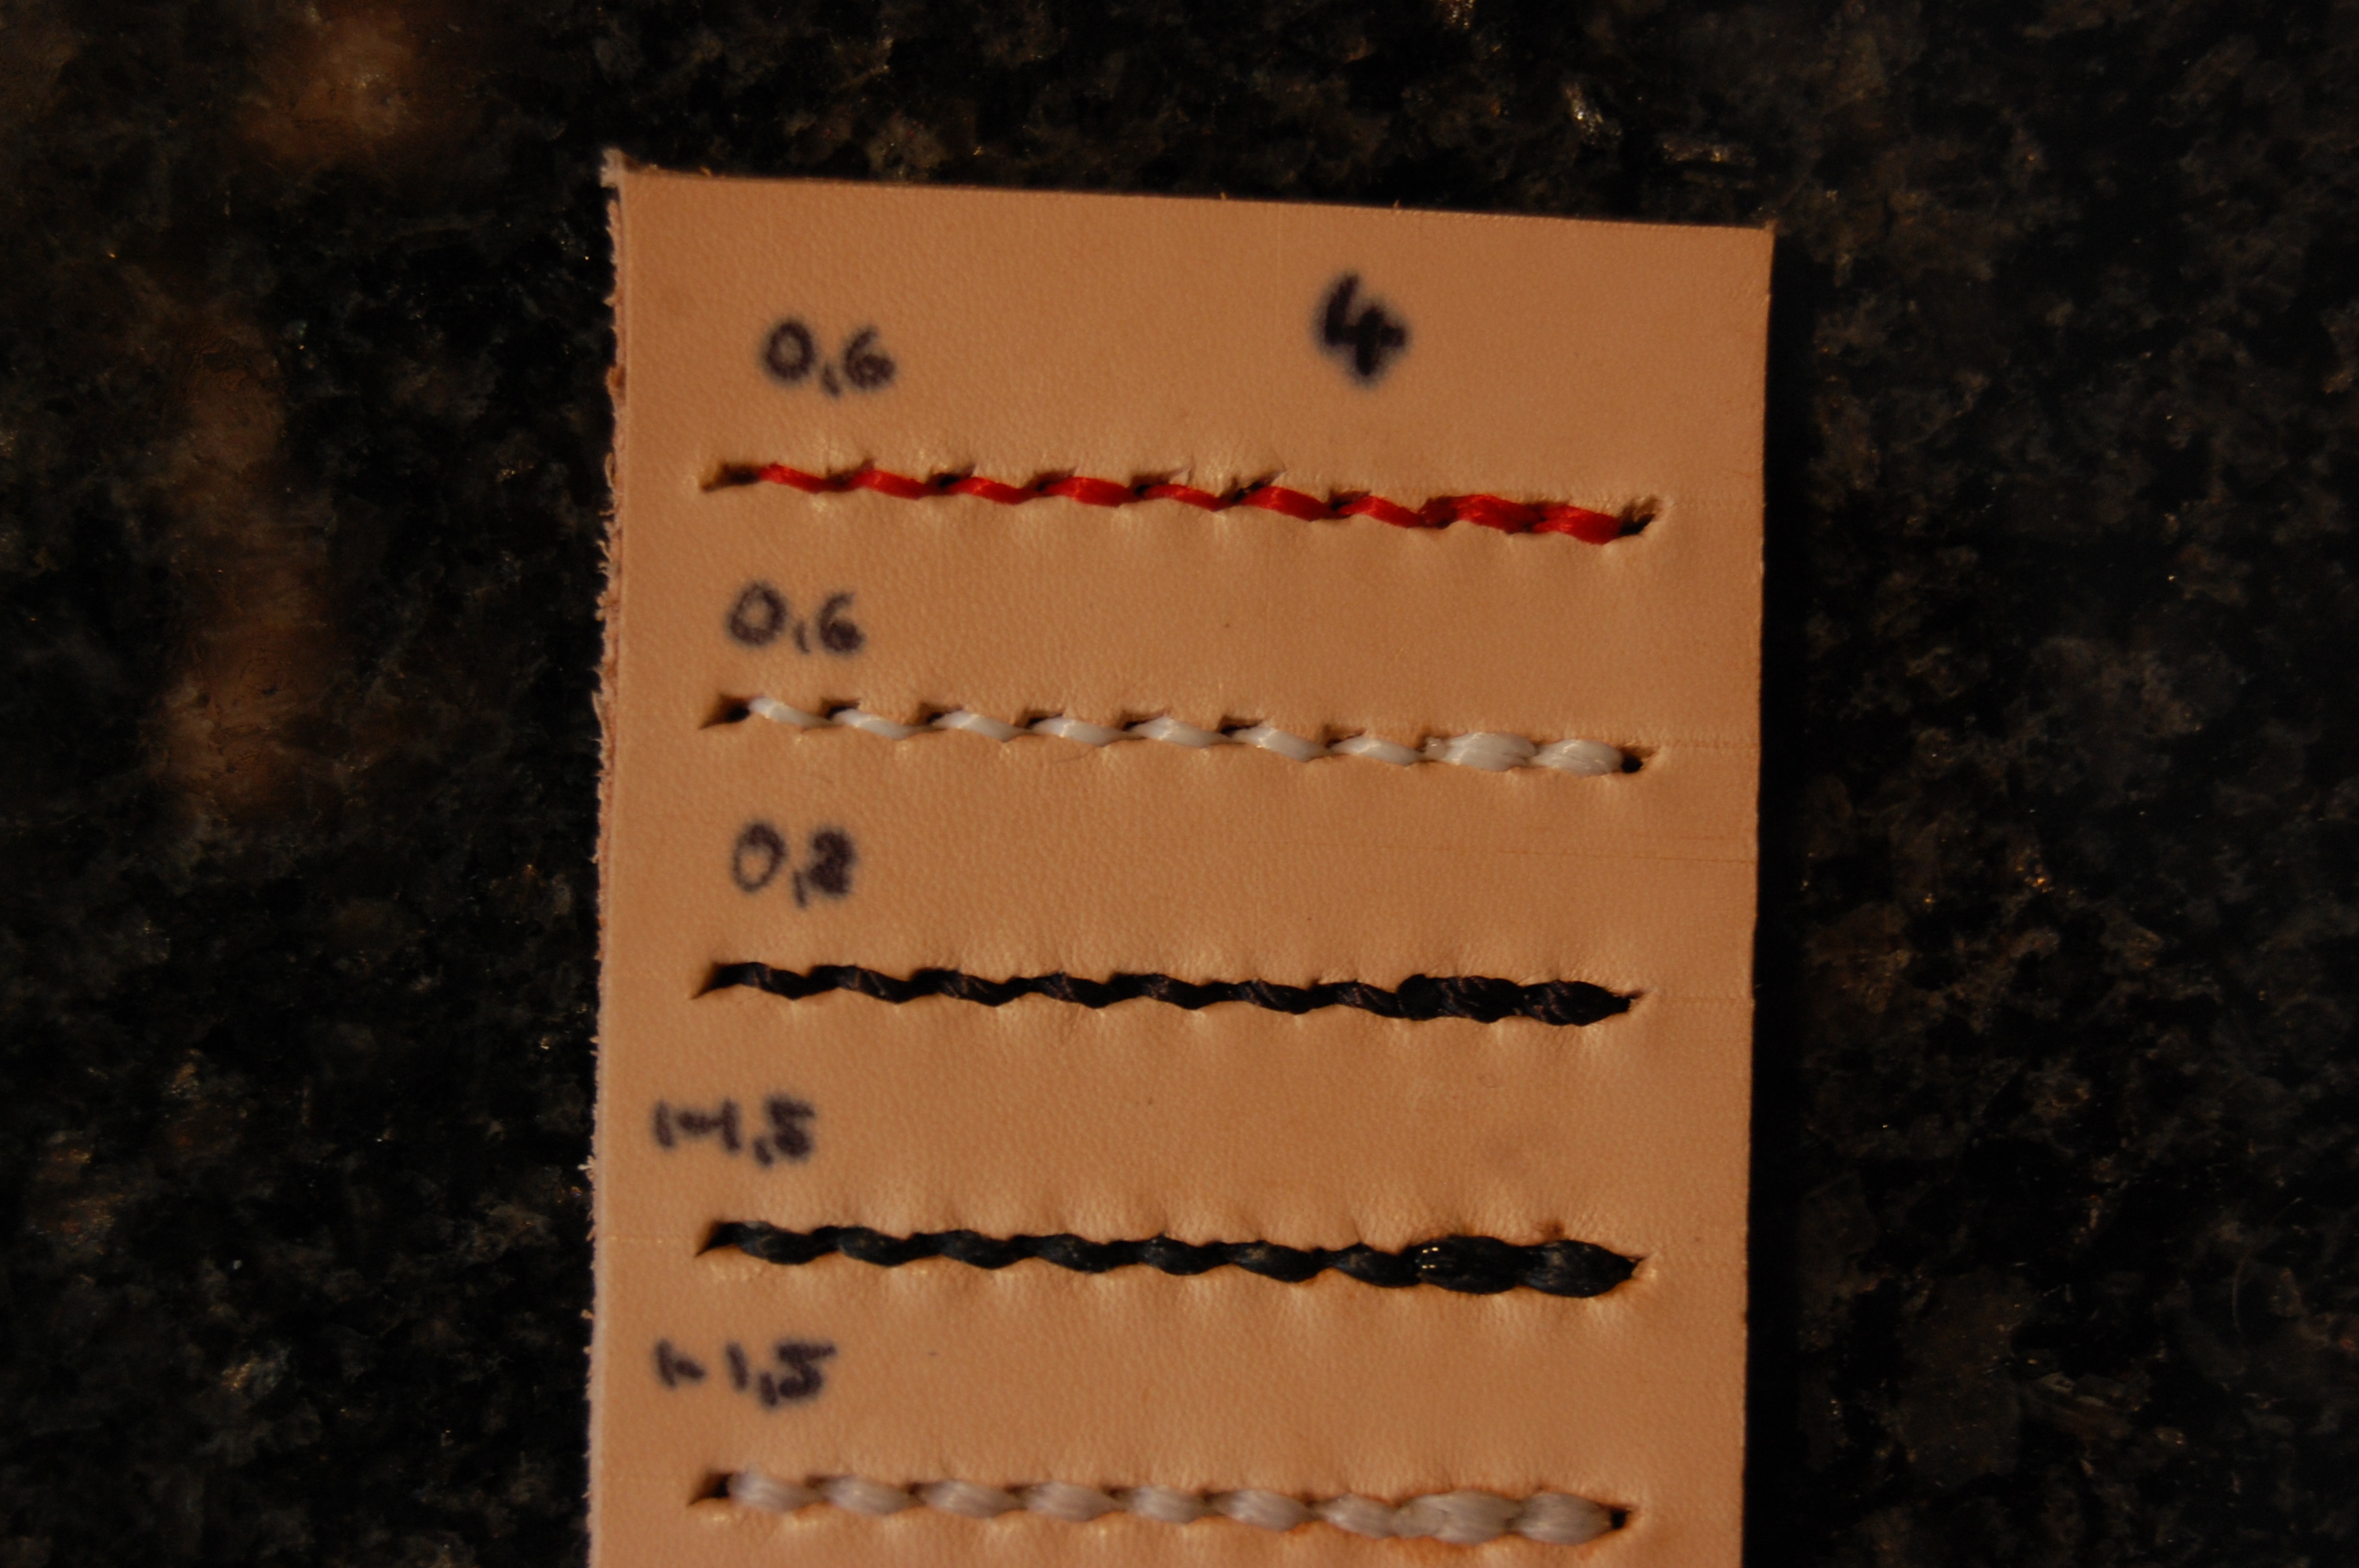 0,6 4
0,6
0,8
1-1,5
1-1,5